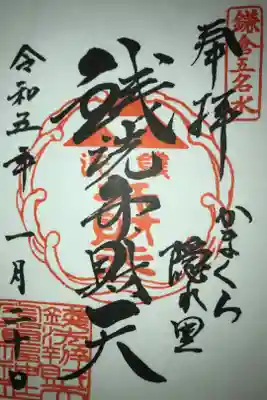 鎌倉五名水
奉拝
かまくら
隠れ里
銭洗弁財天
令和五年一月二十日